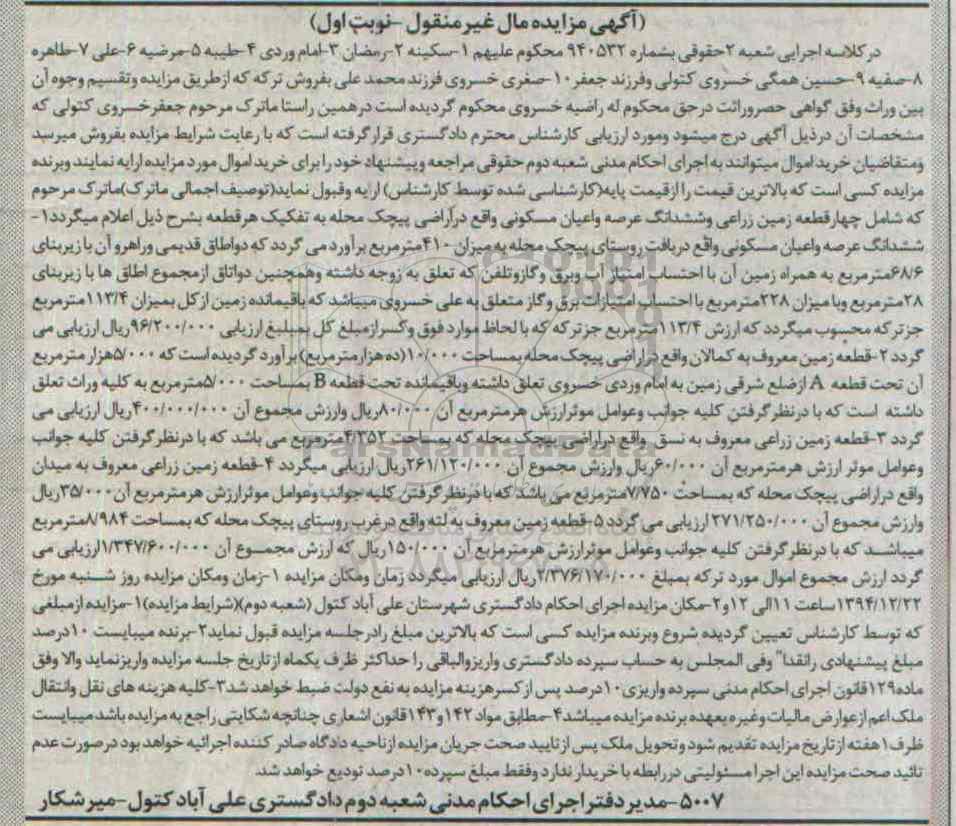 (آگهی مزایده مال غیر منقول -نوبت اول)
درکلاسه اجرایی شعبه ۲حقوقی بشماره ۹۴۰۵۳۲ محکوم علیهم ۱-سکینه ۲-رمضان ۳-امام وردی ۴-طیبه ۵-مرضیه ۶-علی ۷-طاهره
۸-صفیه ۹-حسین همگی خسروی کتولی وفرزند جعفر۱۰-صغری خسروی فرزند محمد علی بفروش ترکه که ازطریق مزایده وتقسیم وجوه آن
بین وراث وفق گواهی حصروراثت درحق محکوم له راضیه خسروی محکوم گردیده است درهمین راستا ماترک مرحوم جعفرخسروی کتولی که
مشخصات آن درذیل آگهی درج میشود ومورد ارزیابی کارشناس محترم دادگستری قرارگرفته است که با رعایت شرایط مزایده بفروش میرسد
ومتقاضیان خرید اموال میتوانند به اجرای احکام مدنی شعبه دوم حقوقی مراجعه وپیشنهاد خود را برای خرید اموال مورد مزایده ارایه نمایند وبرنده
مزایده کسی است که بالاترین قیمت را ازقیمت پایه(کارشناسی شده توسط کارشناس) ارایه وقبول نماید(توصیف اجمالی ماترک)ماترک مرحوم
که شامل چهارقطعه زمین زراعی وششدانگ عرصه واعیان مسکونی واقع درآراضی پیچک محله به تفکیک هرقطعه بشرح ذیل اعلام میگردد۱-
ششدانگ عرصه واعیان مسکونی واقع دربافت روستای پیچک محله به میزان ۴۱۰مترمربع برآورد می گردد که دواطاق قدیمی وراهرو آن با زیربنای
۶۸/۶مترمربع به همراه زمین آن با احتساب امتیاز آب وبرق وگازوتلفن که تعلق به زوجه داشته وهمچنین دواتاق ازمجموع اطلاق ها با زیربنای
۲۸مترمربع وبا میزان ۲۲۸مترمربع با احتساب امتیازات برق وگاز متعلق به علی خسروی میباشد که باقیمانده زمین ازکل بمیزان ۱۱۳/۴مترمربع
جزترکه محسوب میگردد که ارزش ۱۱۳/۴مترمربع جزترکه که با لحاظ موارد فوق وکسرازمبلغ کل بمبلیغ ارزیابی ۹۶/۲۰۰/۰۰۰ریال ارزیابی می
گردد ۲-قطعه زمین معروف به کمالان واقع درآراضی پیچک محله بمساحت ۱۰/۰۰۰(ده هزارمترمربع)برآورد گردیده است که ۵/۰۰۰هزار مترمربع
آن تحت قطعه A ازضلع شرقی زمین به امام وردی خسروی تعلق داشته وباقیمانده تحت قطعه B بمساحت ۵/۰۰۰مترمربع به کلیه وراث تعلق
داشته است که با درنظرگرفتن کلیه جوانب وعوامل موثرارزش هرمترمربع آن ۸۰/۰۰۰ریال وارزش مجموع آن ۴۰۰/۰۰۰/۰۰۰ریال ارزیابی می
گردد ۳-قطعه زمین زراعی معروف به نسق واقع دراراضی پیچک محله که بمساحت ۴/۳۵۲مترمربع می باشد که با درنظرگرفتن کلیه جوانب
وعوامل موثر ارزش هرمترمربع آن ۶۰/۰۰۰ریال وارزش مجموع آن ۲۶۱/۱۲۰/۰۰۰ریال ارزیابی میگردد ۴-قطعه زمین زراعی معروف به میدان
واقع دراراضی پیچک محله که بمساحت ۷/۷۵۰مترمربع می باشد که با درنظرگرفتن کلیه جوانب وعوامل موثرارزش هرمترمربع آن ۳۵/۰۰۰ریال
وارزش مجموع آن ۲۷۱/۲۵۰/۰۰۰ ارزیابی می گردد ۵-قطعه زمین معروف به لته واقع درغرب روستای پیچک محله که بمساحت ۸/۹۸۴مترمربع
میباشد که با درنظرگرفتن کلیه جوانب وعوامل موثرارزش هرمترمربع آن ۱۵۰/۰۰۰ریال که ارزش مجموع آن ۱/۳۴۷/۶۰۰/۰۰۰ارزیابی می
گردد ارزش مجموع اموال مورد ترکه بمبلغ ۲/۳۷۶/۱۷۰/۰۰۰ریال ارزیابی میگردد زمان ومکان مزایده ۱-زمان ومکان مزایده روز شنبه مورخ
۱۳۹۴/۱۲/۲۲ساعت ۱۱الی ۱۲و۲-مکان مزایده اجرای احکام دادگستری شهرستان علی آباد کتول (شعبه دوم)(شرایط مزایده)۱-مزایده ازمبلغی
که توسط کارشناس تعیین گردیده شروع وبرنده مزایده کسی است که بالاترین مبلغ رادرجلسه مزایده قبول نماید۲-برنده میبایست ۱۰درصد
مبلغ پیشنهادی رانقدا" وفی المجلس به حساب سپرده دادگستری واریزوالباقی را حداکثر ظرف یکماه ازتاریخ جلسه مزایده واریزنماید والا وفق
ماده۱۲۹قانون اجرای احکام مدنی سپرده واریزی۱۰درصد پس ازکسرهزینه مزایده به نفع دولت ضبط خواهد شد۳-کلیه هزینه های نقل وانتقال
ملک اعم ازعوارض مالیات وغیره بعهده برنده مزایده میباشد۴-مطابق مواد ۱۴۲و۱۴۳قانون اشعاری چنانچه شکایتی راجع به مزایده باشد میبایست
ظرف۱هفته ازتاریخ مزایده تقدیم شود وتحویل ملک پس ازتایید صحت جریان مزایده ازناحیه دادگاه صادر کننده اجرائیه خواهد بود درصورت عدم
تائید صحت مزایده این اجرا مسئولیتی دررابطه با خریدار ندارد وفقط مبلغ سپرده۱۰درصد تودیع خواهد شد.
۵۰۰۷-مدیر دفتر اجرای احکام مدنی شعبه دوم دادگستری علی آباد کتول-میرشکار
ParsNamadData